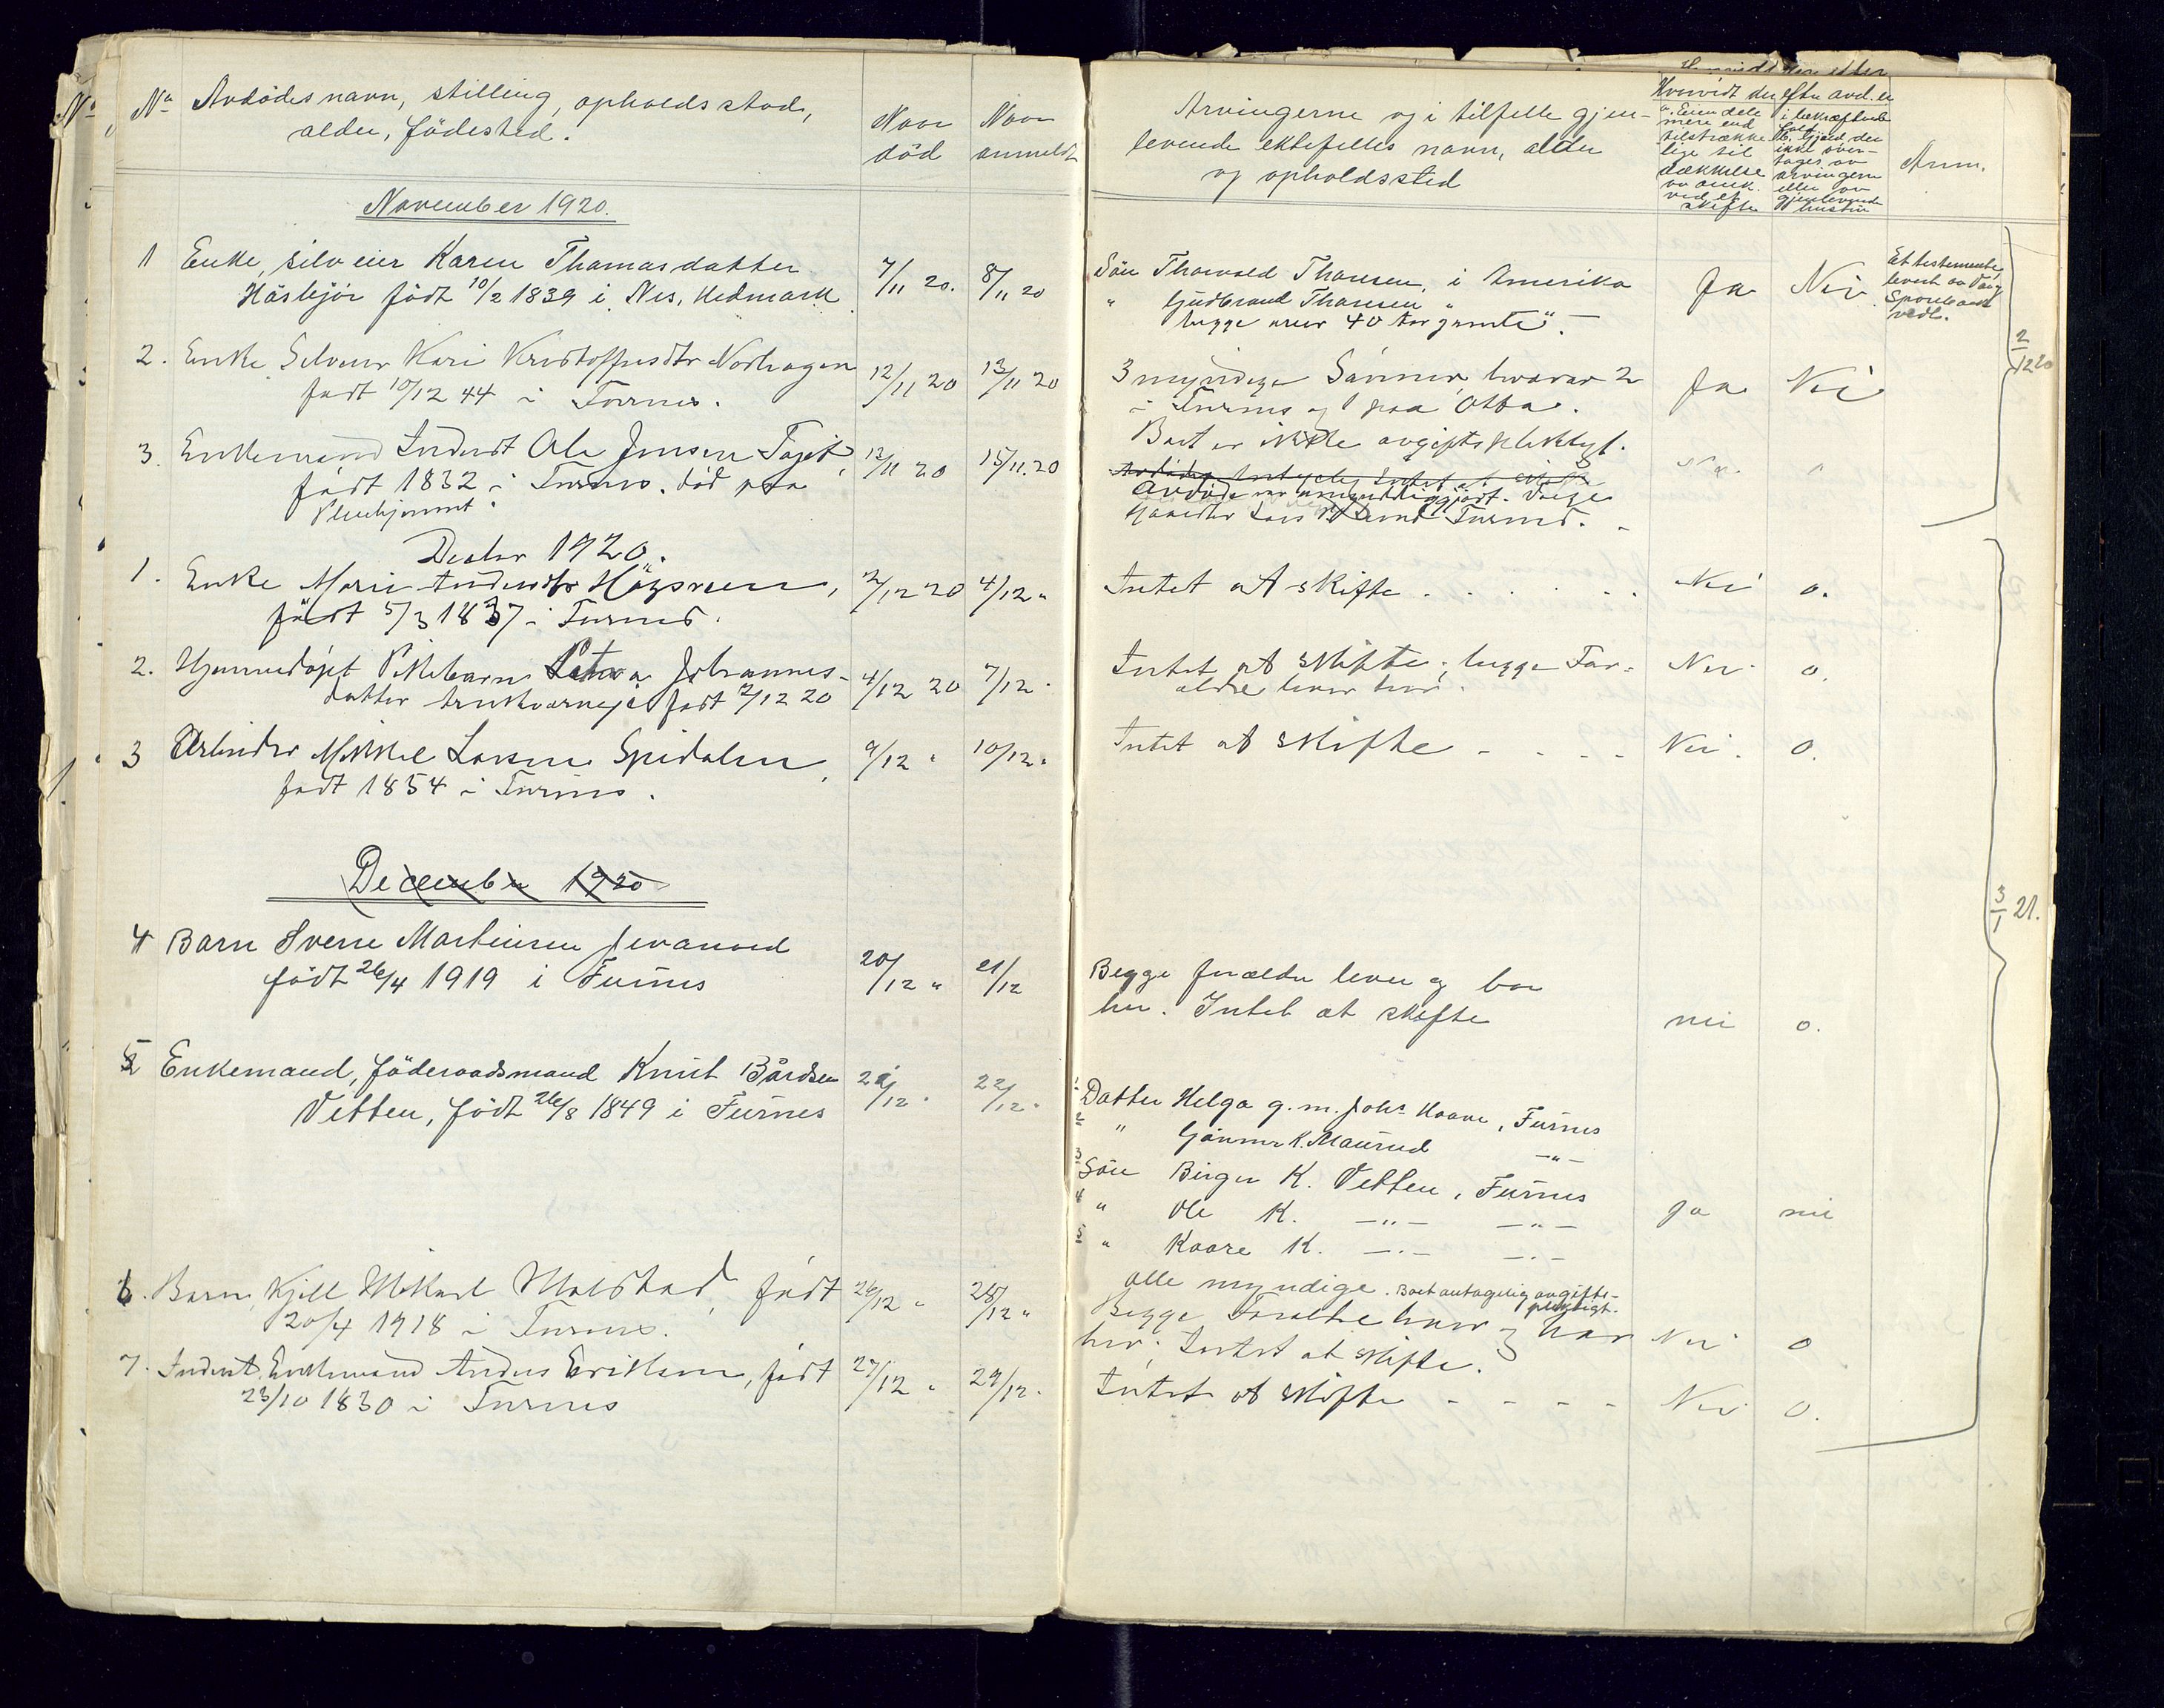 No
No Avdödes navn, stilling, opholdsstad,
alder, födested.
Naar död
Naar anmeldt
November 1920.
1 Enke, selveier Karen Thomasdatter
Häsbjör födt 10/2 1839 i Nes, Hedmark
7/11 20. 8/11 20
2. Enke Selveier Kari Kristoffersdtr Norhagen
født 10/12 44 i Furnes.
12/11 20 13/11 20
3. Enkemand Inderst Ole Jensen
født 1832 i Furnes. död paa
Pleiehjemmet.
13/11 20 15/11.20
Decbr 1920.
1. Enke Marie Andersdtr
født 5/3 1837 i Furnes.
2/12 20 4/12 "
2. Hjemmedøpt Pikebarn Petra Johannes-
datter født 2/12 20
4/12 20 7/12 "
3 Arbeider Mikkel Larsen Spidalen,
født 1854 i Furnes.
9/12 " 10/12 "
December 1920
4 Barn Sverre Martinsen
födt 26/4 1919 i Furnes
20/12 " 21/12
5 Enkemand, föderaadsmand Knut Bårdsen
Vetten, födt 26/8 1849 i Furnes
21/12 " 22/12 "
6. Barn, Kjell født
20/4 1918 i Furnes.
26/12 " 28/12 "
7. Inderst Enkemand Anders Eriksen, født
23/10 1830 i Furnes
27/12 " 29/12 "
Arvingerne og i tilfelle gjen-
levende ektefelles navn, alder
og opholdssted
Hvorvidt der efter avd. er
a. Eiendele mere end tilstrækkelige til dækkelse av omk. ved et skifte
i bekræftende fald b. Gjæld der ikke over-tages av arvingerne eller av gjenlevende hustru
Anm.
Sön Thorvald Thoresen, i Amerika
" Gudbrand Thoresen "
begge over 40 aar gamle".
Ja Nei
Et testamente
Sparebank
vedl.
3 myndige Sønner, hvorav 2
i Furnes og 1 paa Otta.
Boet er ikke avgiftspliktigt.
Ja Nei
Avdøde var umyndiggjort. Værge
Gaardbr Lars Furnes.
2/12 20
Intet at skifte . . . . . . Nei 0.
Intet at skifte; begge For-
ældre lever her. Nei 0.
Intet at skifte - - - - Nei. 0.
Begge forældre lever og bor
her. Intet at skifte nei 0.
3/1 21.
1 Datter Helga g.m. Johs Kaare, Furnes
2 " Gunnor K. Maurud -"-
3 Sön Birger K. Vetten, Furnes
4 " Ole K. -"- -"-
5 " Kaare K. -"- -"-
Ja nei
Alle myndige. Boet antagelig avgifts-
pligtigt.
Begge Forældre lever og bor
her. Intet at skifte. Nei 0
Intet at skifte - - - - Nei 0.